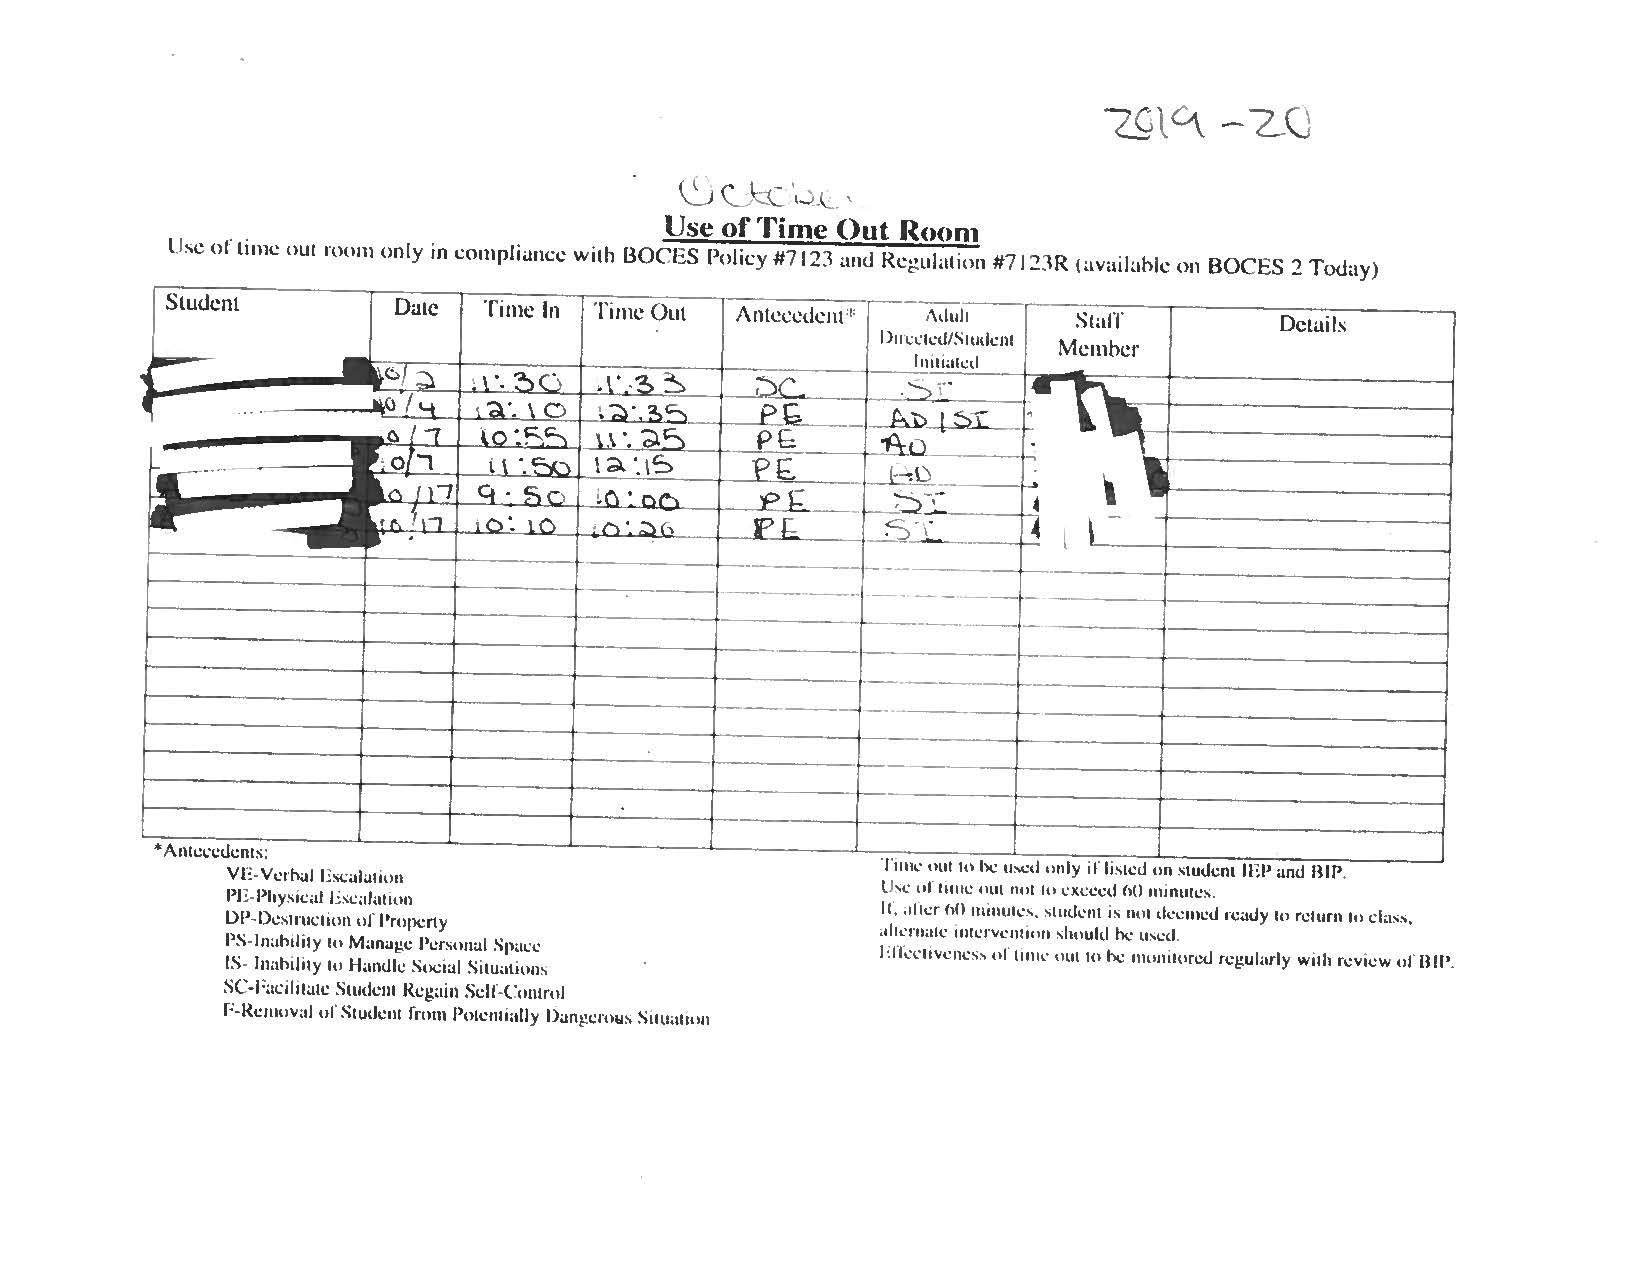 2019-20
October
Use of Time Out Room
Use of time out room only in compliance with BOCES Policy #7123 and Regulation #7123R (available on BOCES 2 Today)
Student Date Time In Time Out Antecedent* Adult Directed/Student Initiated Staff Member Details
10/2 11:30 11:33 SC SI
10/4 12:10 12:35 PE AD/SI
10/7 10:55 11:25 PE AD
10/7 11:50 12:15 PE AD
10/17 9:50 10:00 PE SI
10/17 10:10 10:26 PE SI
*Antecedents:
VE-Verbal Escalation
PE-Physical Escalation
DP-Destruction of Property
PS-Inability to Manage Personal Space
IS- Inability to Handle Social Situations
SC-Facilitate Student Regain Self-Control
F-Removal of Student from Potentially Dangerous Situation
Time out to be used only if listed on student IEP and BIP.
Use of time out not to exceed 60 minutes.
If, after 60 minutes, student is not deemed ready to return to class,
alternate intervention should be used.
Effectiveness of time out to be monitored regularly with review of BIP.